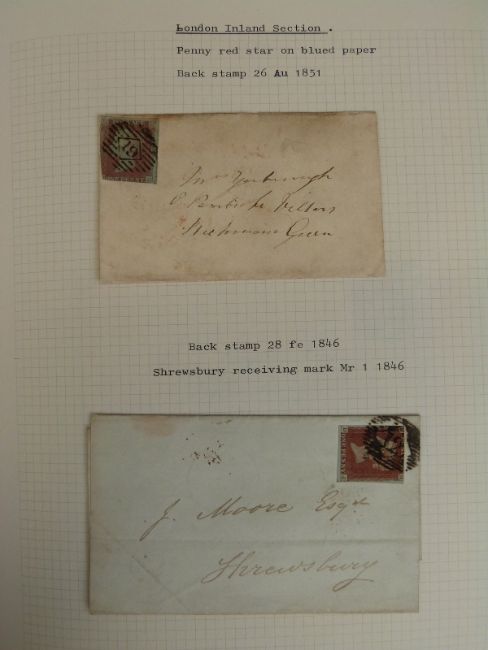 London Inland Section .
Penny red star on blued paper
Back stamp 26 Au 1851
19
Mrs Yarbrough
Richmond Green
Back stamp 28 fe 1846
Shrewsbury receiving mark Mr 1 1846
J. Moore Esqre
Shrewsbury